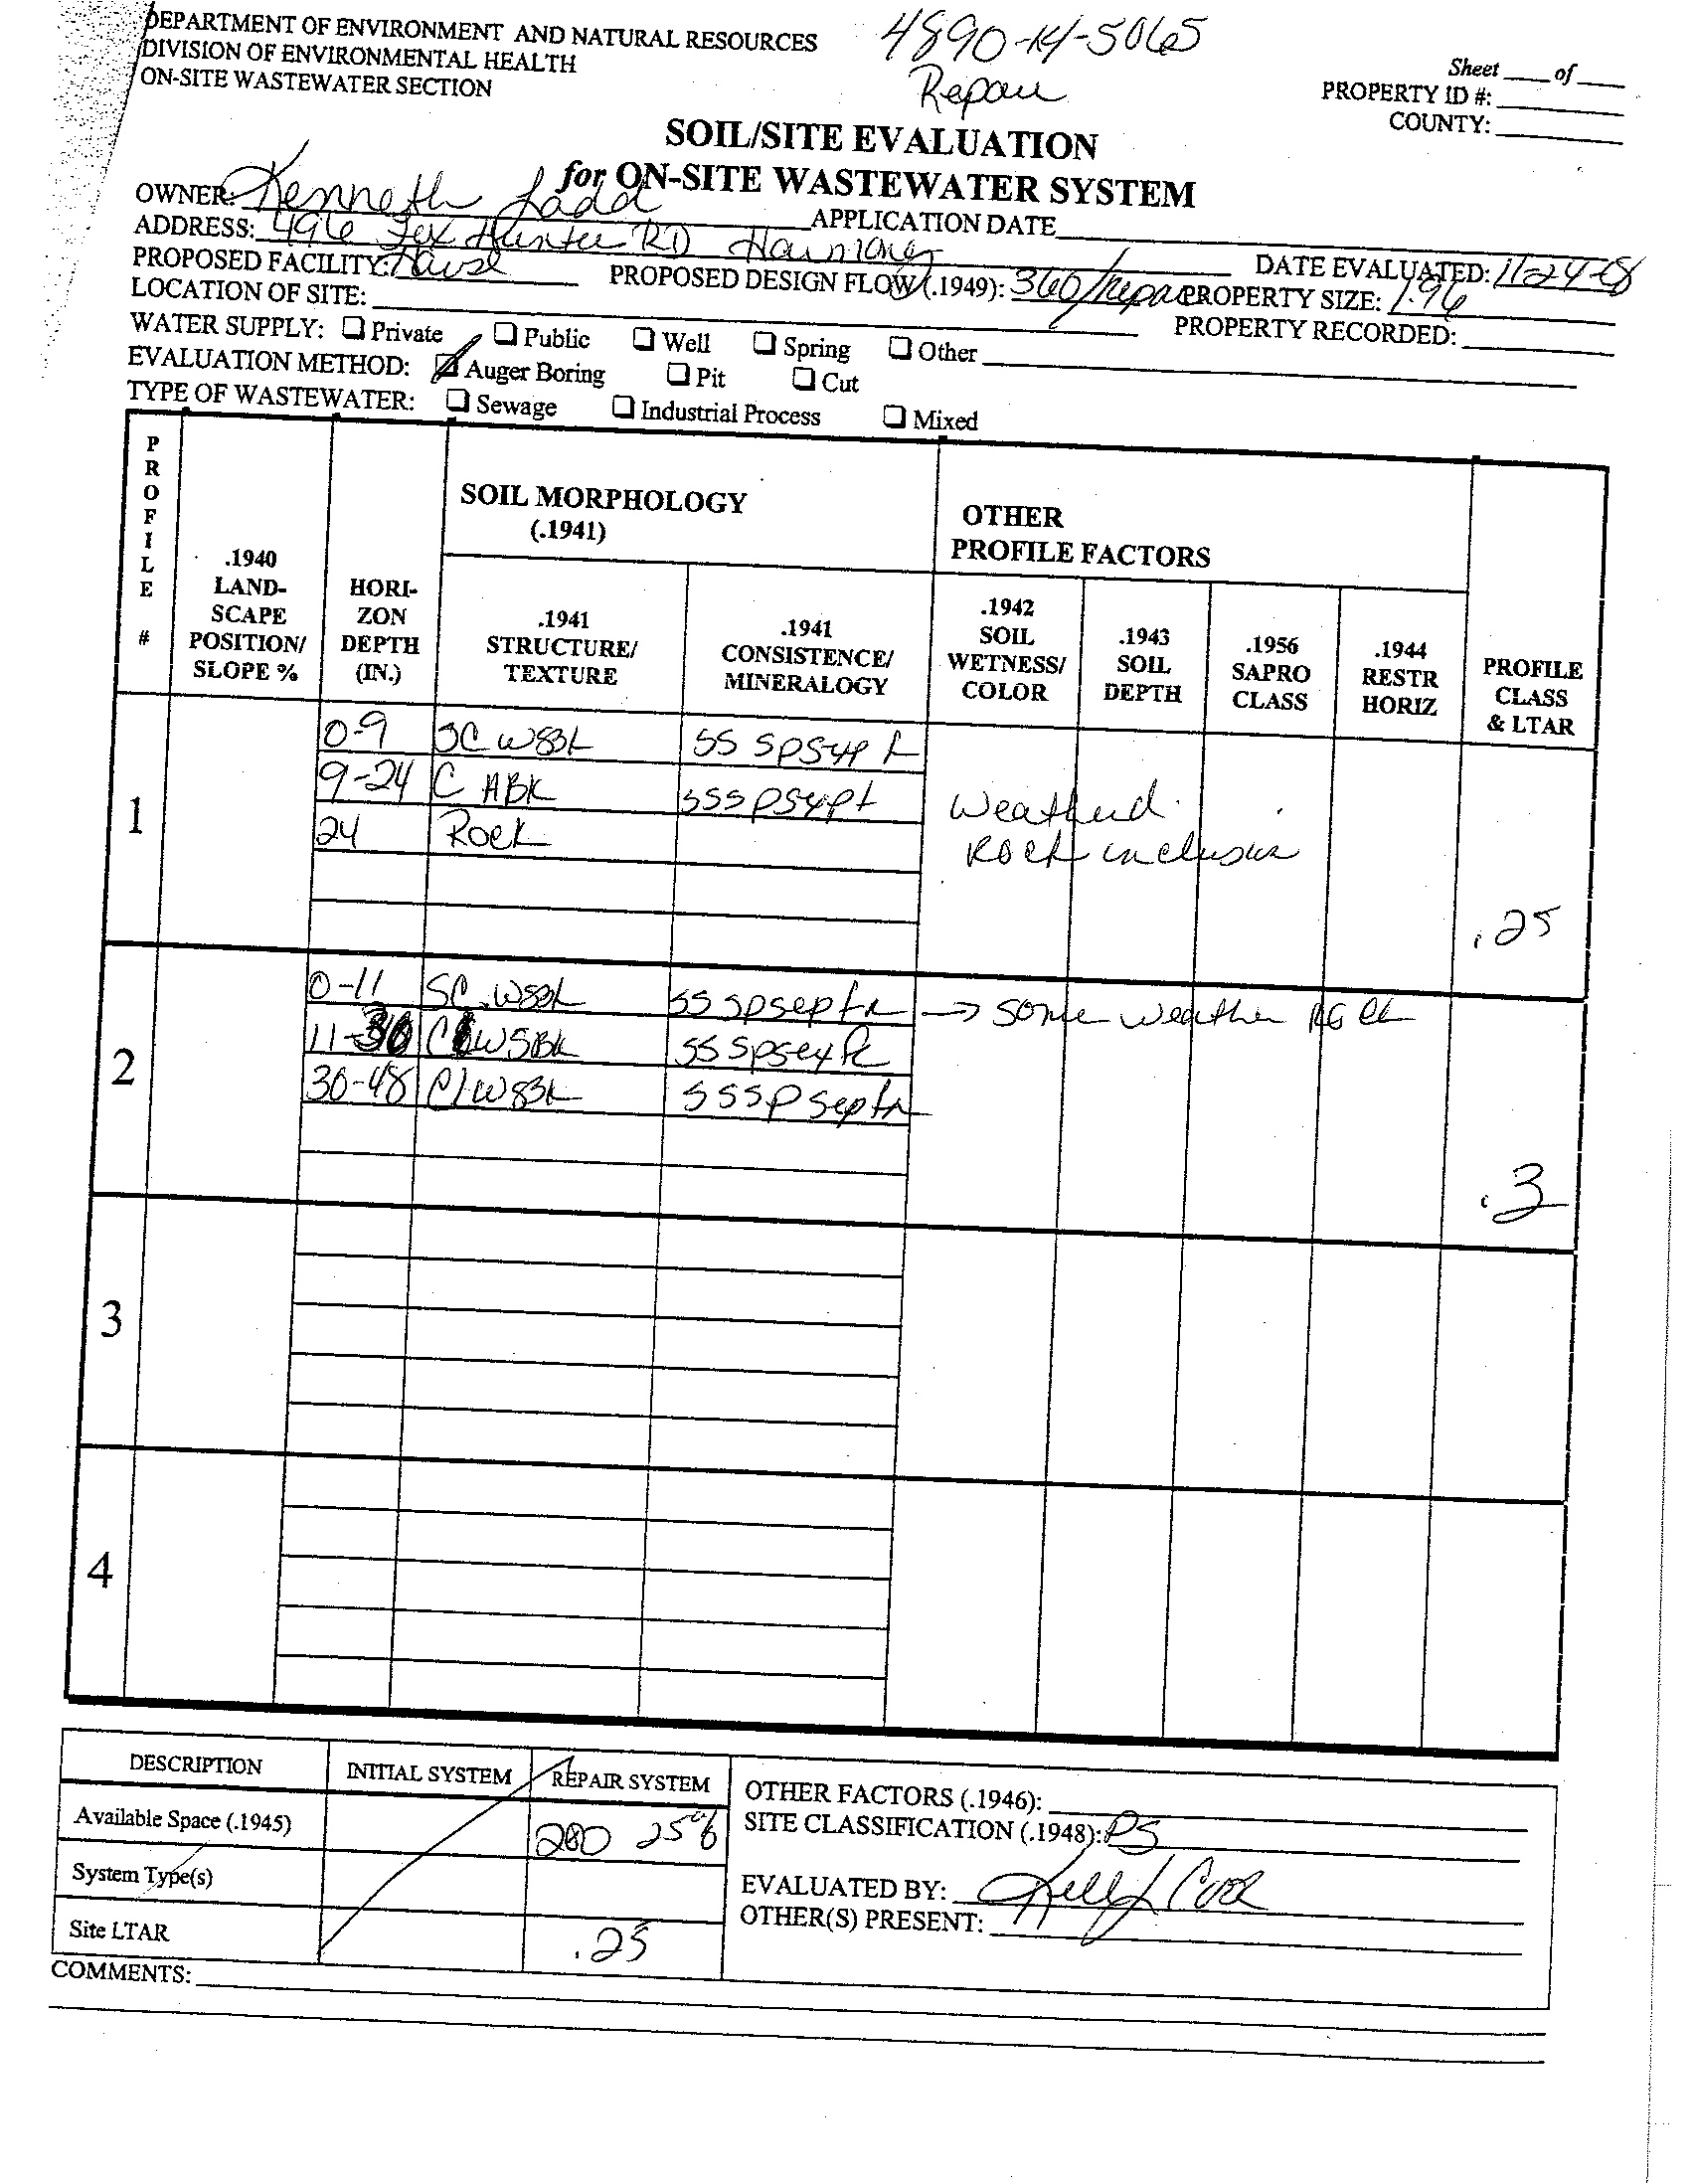 DEPARTMENT OF ENVIRONMENT AND NATURAL RESOURCES
DIVISION OF ENVIRONMENTAL HEALTH
ON-SITE WASTEWATER SECTION
4890-14-5065
Repair
Sheet ____ of ____
PROPERTY ID #:
COUNTY:
SOIL/SITE EVALUATION
for ON-SITE WASTEWATER SYSTEM
OWNER: Kenneth Ladd
APPLICATION DATE
ADDRESS: 496 Hunter RD
DATE EVALUATED: 11-24-08
PROPOSED FACILITY: House
PROPOSED DESIGN FLOW (.1949): 360/repair
PROPERTY SIZE: 1.96
LOCATION OF SITE:
PROPERTY RECORDED:
WATER SUPPLY: ☐ Private ☐ Public ☐ Well ☐ Spring ☐ Other
EVALUATION METHOD: ☑ Auger Boring ☐ Pit ☐ Cut
TYPE OF WASTEWATER: ☐ Sewage ☐ Industrial Process ☐ Mixed
PROFILE #
.1940 LAND-SCAPE POSITION/ SLOPE %
HORI-ZON DEPTH (IN.)
SOIL MORPHOLOGY (.1941)
.1941 STRUCTURE/ TEXTURE
.1941 CONSISTENCE/ MINERALOGY
OTHER PROFILE FACTORS
.1942 SOIL WETNESS/ COLOR
.1943 SOIL DEPTH
.1956 SAPRO CLASS
.1944 RESTR HORIZ
PROFILE CLASS & LTAR
1
0-9 SC WSBK
9-24 C ABK
24 Rock
Weathered
Rock inclusion
.25
2
0-11 SC WSBK SS SP sexp fr → some weather rock
11-30 C WSBK SS SP sexp
30-48 CL WSBK SS SP sexp fr
.3
3
4
DESCRIPTION INITIAL SYSTEM REPAIR SYSTEM
Available Space (.1945) 200 25%
System Type(s)
Site LTAR .25
OTHER FACTORS (.1946):
SITE CLASSIFICATION (.1948): PS
EVALUATED BY: Kelly
OTHER(S) PRESENT:
COMMENTS: